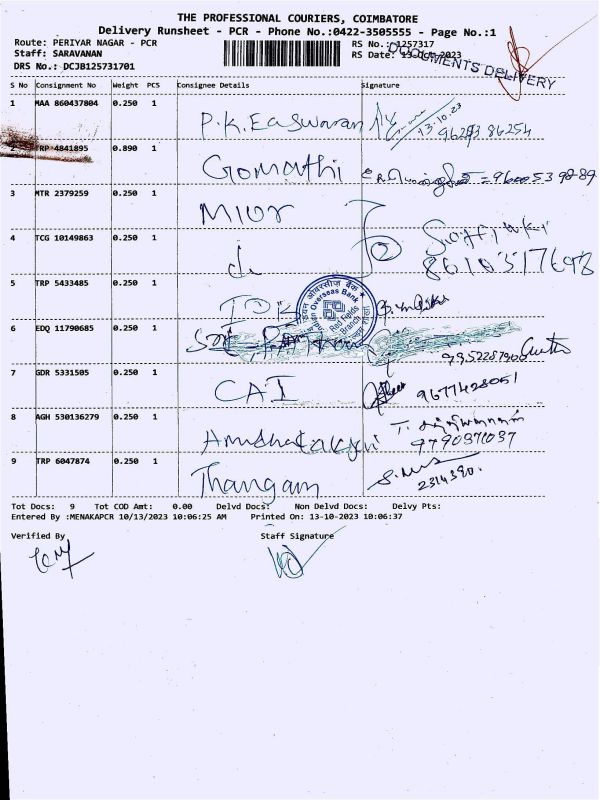 THE PROFESSIONAL COURIERS, COIMBATORE
Delivery Runsheet - PCR - Phone No.:0422-3505555 - Page No.:1
Route: PERIYAR NAGAR - PCR
RS No.: 1257317
Staff: SARAVANAN
RS Date: 13-Oct-2023
DOCUMENTS DELIVERY
DRS No.: DCJB125731701
S No Consignment No Weight PCS Consignee Details Signature
1 MAA 860437804 0.250 1 P.K. Easwaran 13.10.23 96293 86254
2 TRP 4841895 0.890 1 Gomathi
3 MTR 2379259 0.250 1
4 TCG 10149863 0.250 1 8610317698
5 TRP 5433485 0.250 1
Indian Overseas Bank
Red Fields Branch
6 EDQ 11790685 0.250 1
7 GDR 5331505 0.250 1 CAI 9677428051
8 AGH 530136279 0.250 1 9790371037
9 TRP 6047874 0.250 1 Thangam 2314390.
Tot Docs: 9 Tot COD Amt: 0.00 Delvd Docs: Non Delvd Docs: Delvy Pts:
Entered By :MENAKAPCR 10/13/2023 10:06:25 AM Printed On: 13-10-2023 10:06:37
Verified By Staff Signature